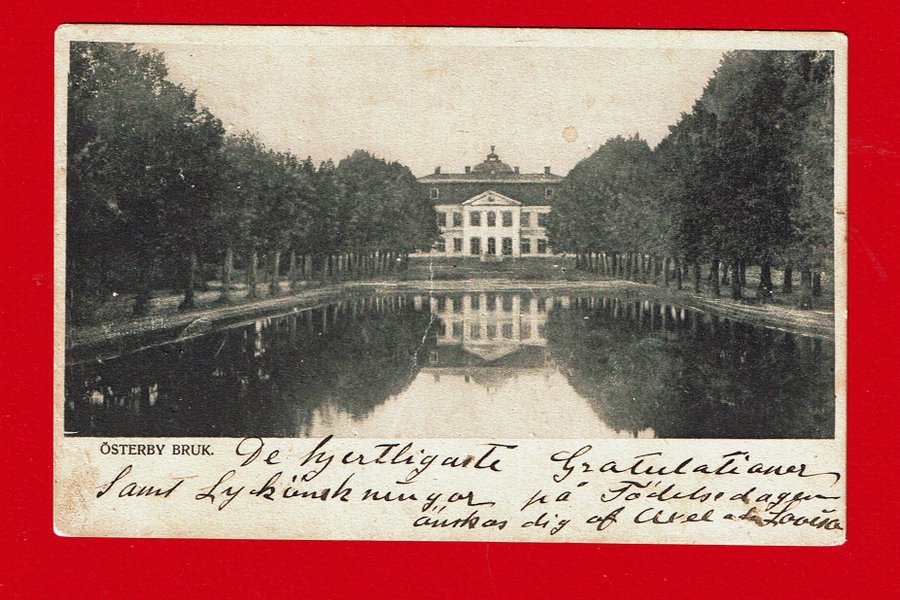 ÖSTERBY BRUK.
De hjertligaste Gratulationer
Samt Lyckönskningor på Födelsedagen
önskas dig af Axel och Lovisa